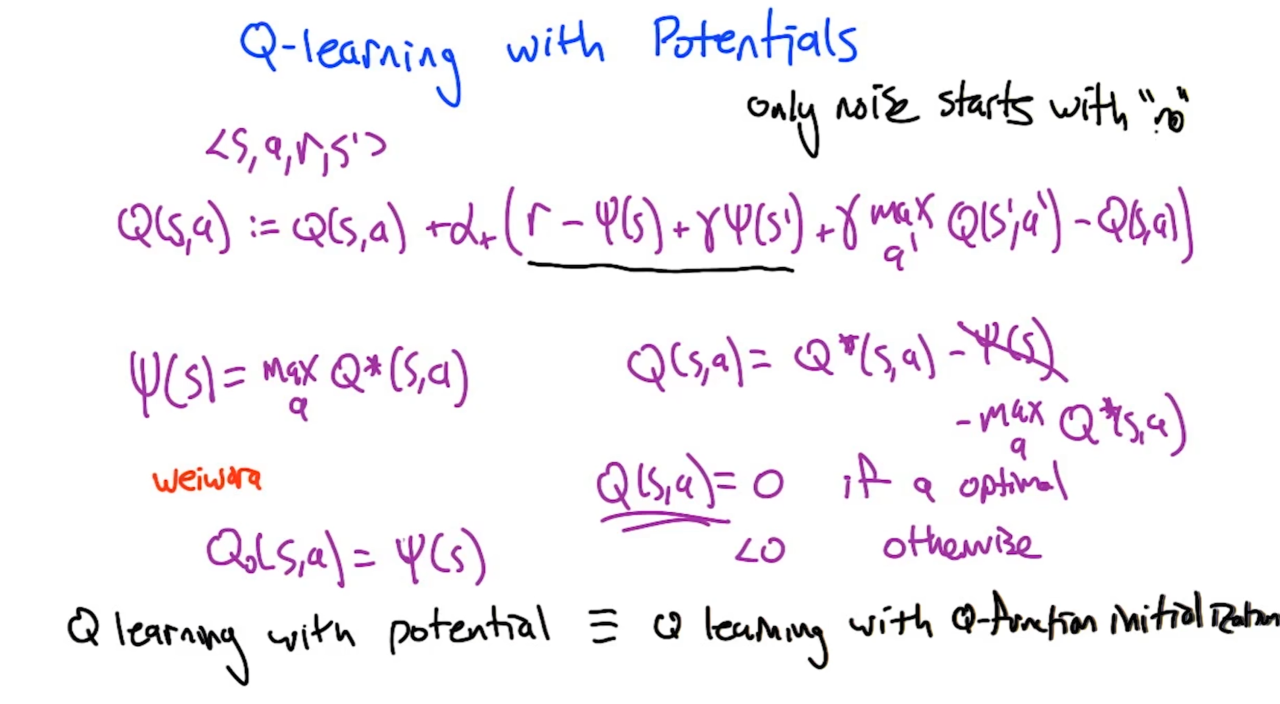 Q-learning with Potentials
only noise starts with "no"
<s, a, r, s'>
Q(s,a) := Q(s,a) + αₜ (r - Ψ(s) + γΨ(s') + γ max Q(s',a') - Q(s,a))
a'
Ψ(s) = max Q*(s,a)
a
Q(s,a) = Q*(s,a) - Ψ(s)
- max Q*(s,a)
a
weiwara
Q(s,a) = 0 if a optimal
<0 otherwise
Q₀(s,a) = Ψ(s)
Q learning with potential ≡ Q learning with Q-function initialization